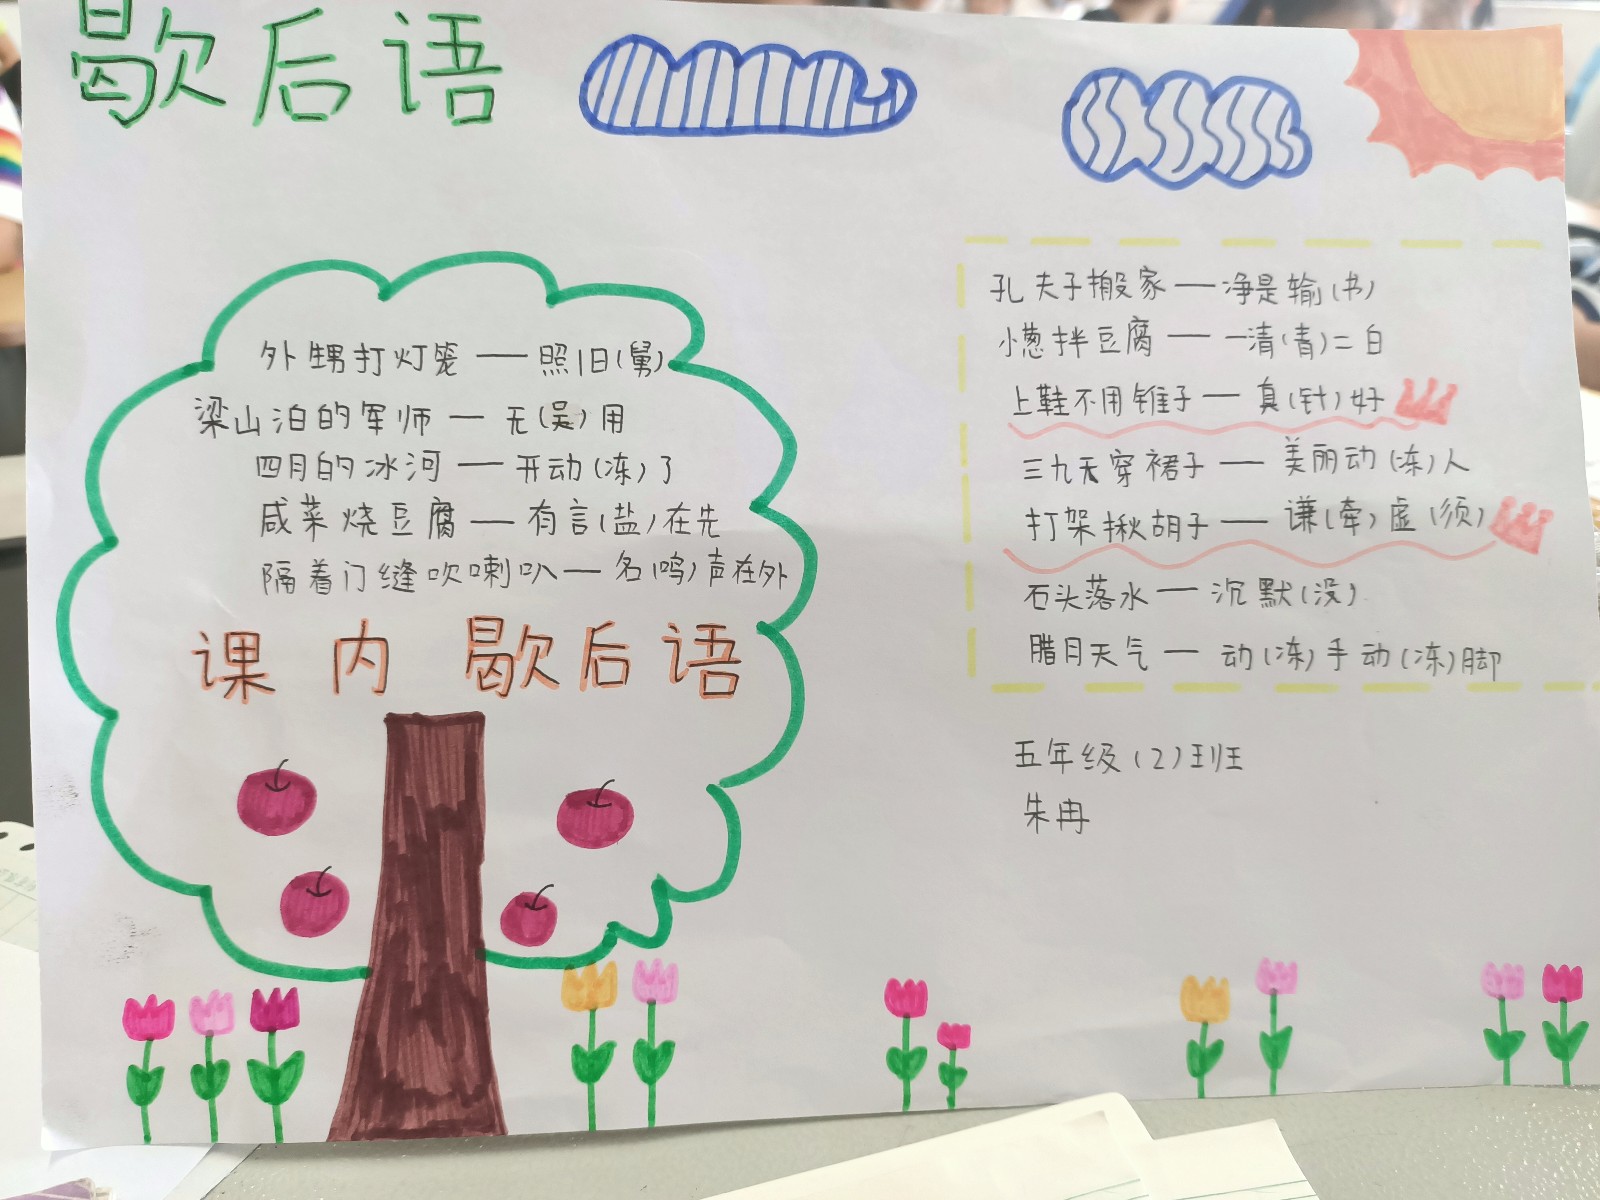 歇后语
外甥打灯笼——照旧(舅)
梁山泊的军师—无(吴)用
四月的冰河——开动(冻)了
咸菜烧豆腐——有言(盐)在先
隔着门缝吹喇叭——名(鸣)声在外
课内歇后语
孔夫子搬家——净是输(书)
小葱拌豆腐——一清(青)二白
上鞋不用锥子——真(针)好
三九天穿裙子——美丽动(冻)人
打架揪胡子——谦(牵)虚(须)
石头落水——沉默(没)
腊月天气—动(冻)手动(冻)脚
五年级(2)班
朱冉